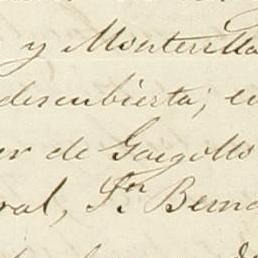 y Monterilla
descubierta; en
er de Gargollo
ral, Sn. Berna